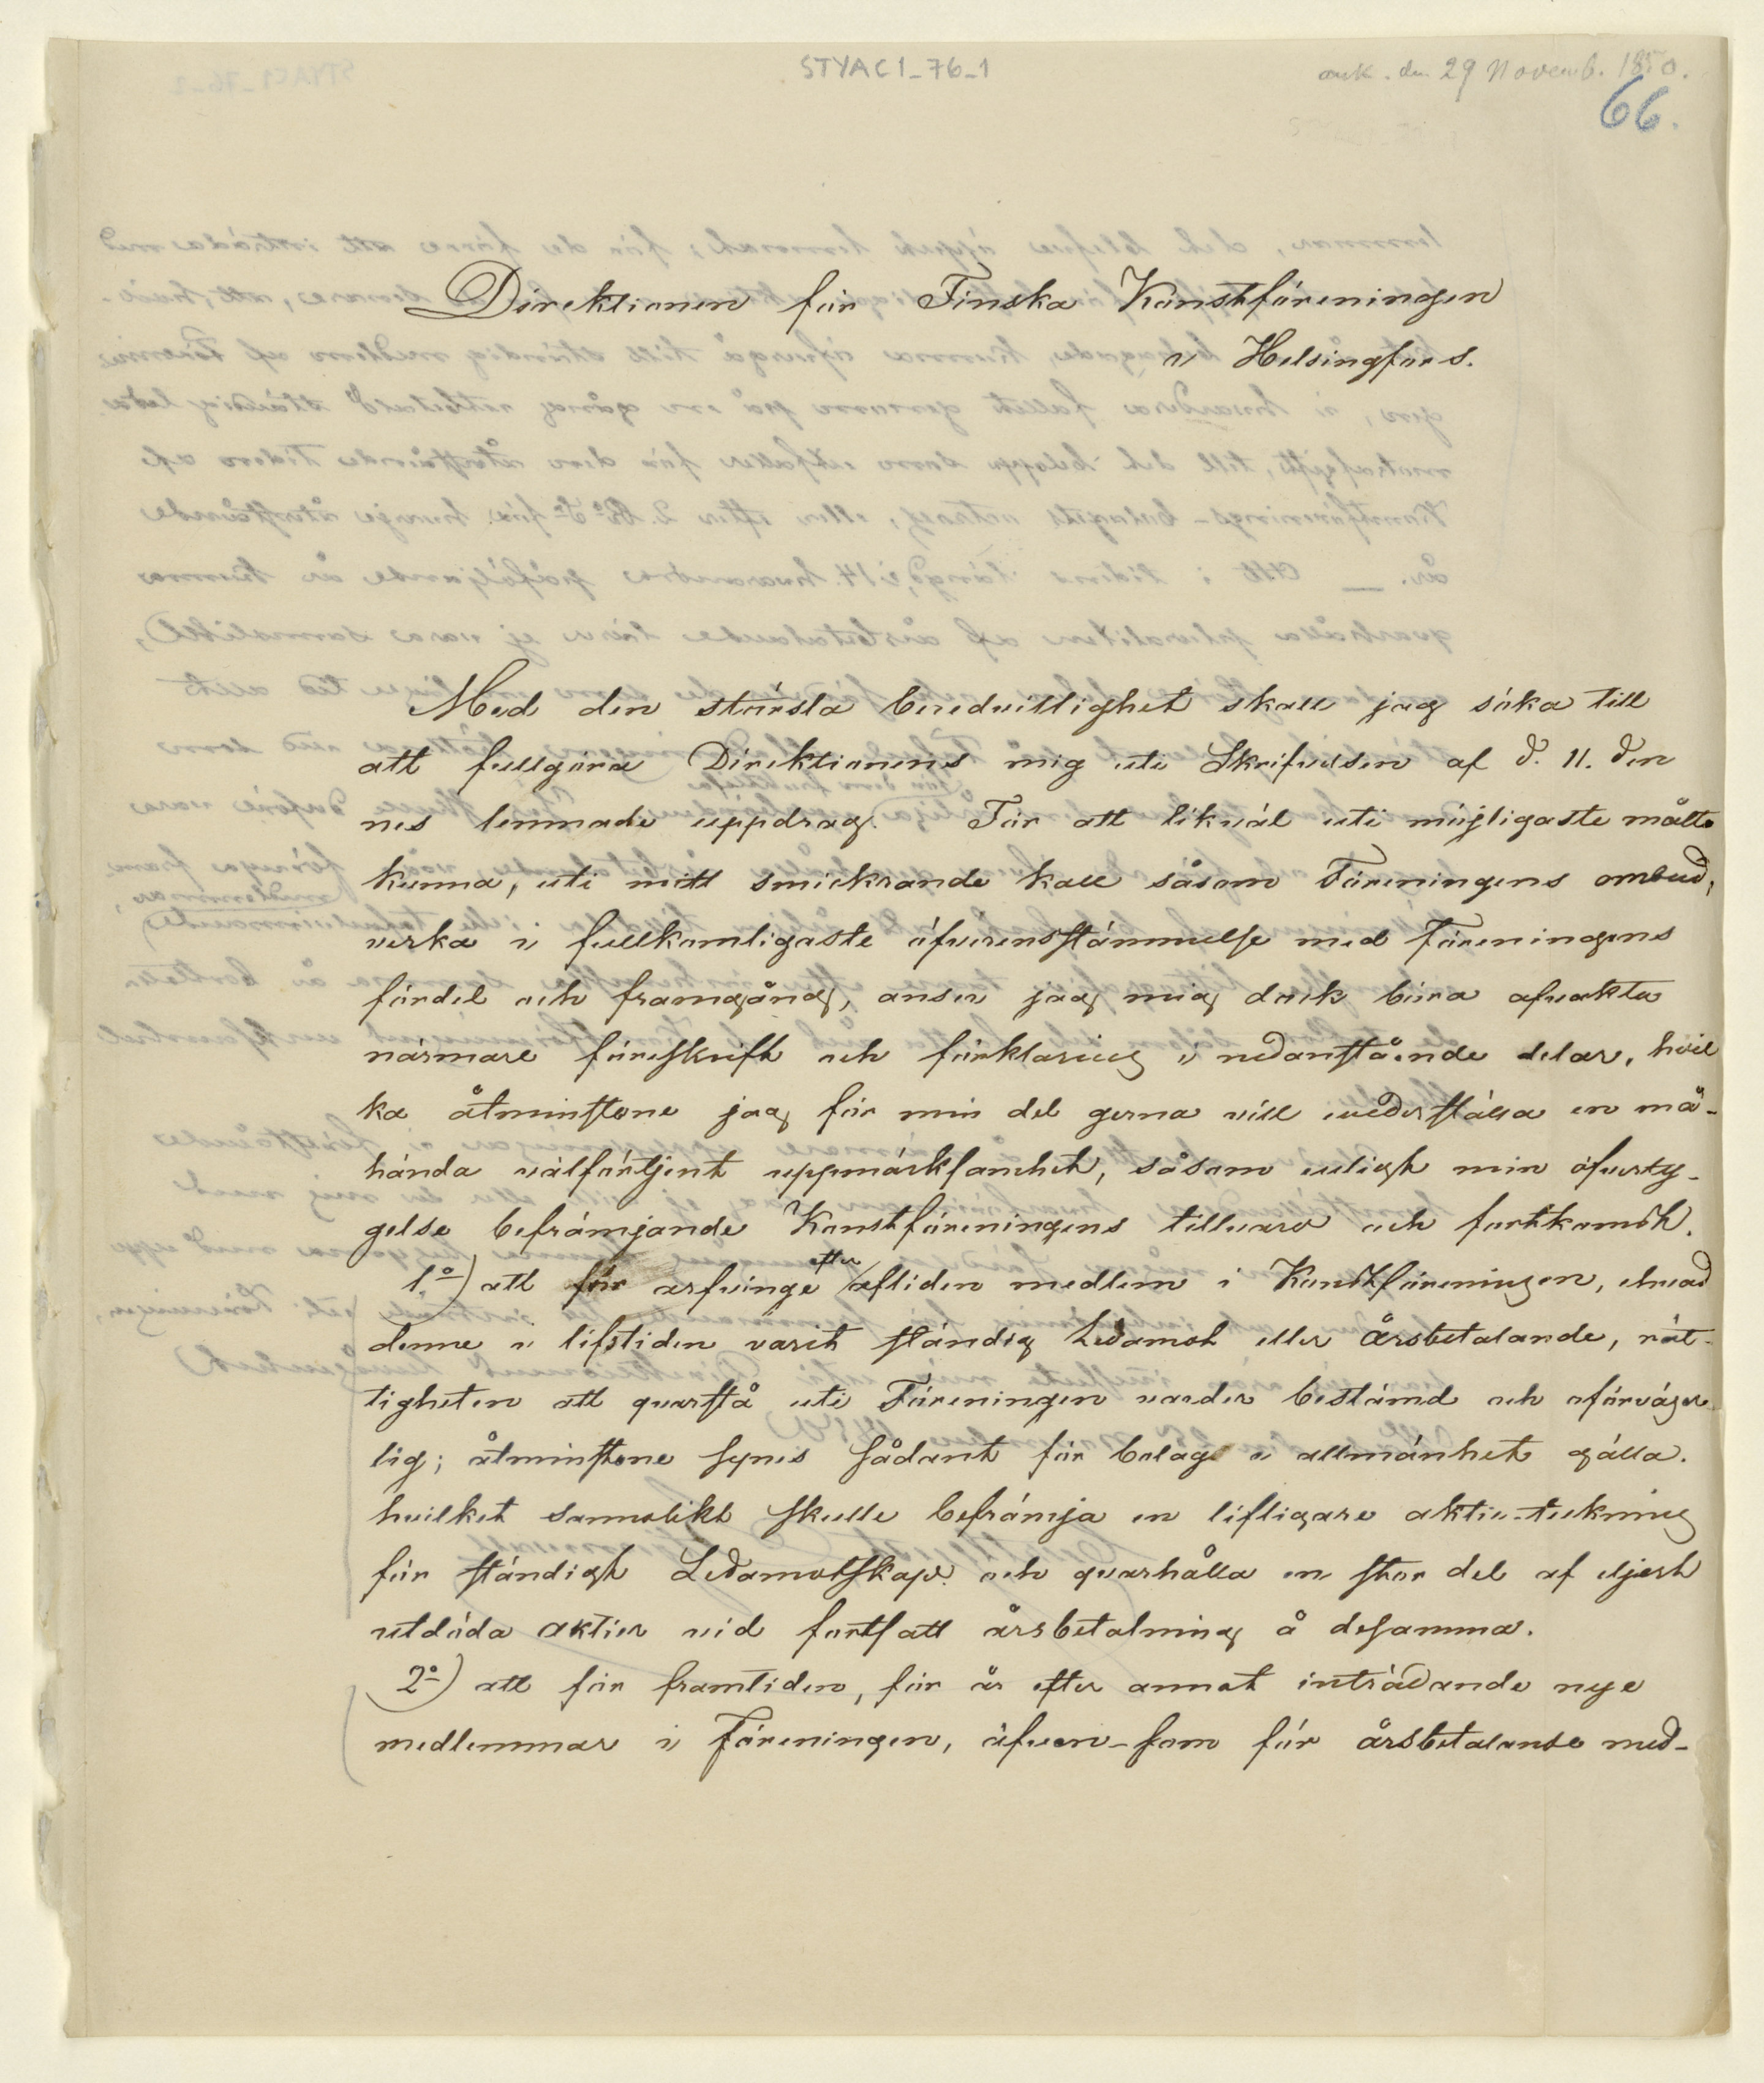 STYAC1_76_1
ank. den 29 Novemb. 1850.
66.
Direktionen för Finska Konstföreningen
i Helsingfors.
Med den största beredvillighet skall jag söka till
att fullgöra Direktionens mig uti Skrifvelsen af d. 11. den
nes lemnade uppdrag. För att likväl uti möjligaste måtto
kunna, uti mitt smickrande kall såsom Föreningens ombud,
verka i fullkomligaste öfverensstämmelse med Föreningens
fördel och framgång, anser jag mig dock böra afvakta
närmare föreskrift och förklaring i nedanstående delar, hvil
ka åtminstone jag för min del gerna vill underställa en må-
hända välförtjent uppmärksamhet, såsom enligt min öfverty-
gelse befrämjande Konstföreningens tillvaro och fortkomst.
1º) att för arfvinge efter afliden medlem i Konstföreningen, ehvad
denne i lifstiden varit ständig Ledamot eller Årsbetalande, rät-
tigheten att qvarstå uti Föreningen vorder bestämd och oförväger
lig; åtminstone synes sådant för bolag i allmänhet gälla.
hvilket sannolikt skulle befrämja en lifligare aktie-teckning
för ständigt Ledamotskap och qvarhålla en stor del af eljest
utdöda aktier vid fortsatt årsbetalning å desamma.
2º) att för framtiden, för år efter annat inträdande nye
medlemmar i Föreningen, äfven-som för årsbetalande med-